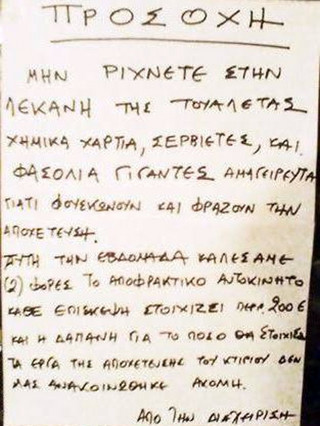 ΠΡΟΣΟΧΗ
ΜΗΝ ΡΙΧΝΕΤΕ ΣΤΗΝ
ΛΕΚΑΝΗ ΤΗΣ ΤΟΥΑΛΕΤΑΣ
ΧΗΜΙΚΑ ΧΑΡΤΙΑ, ΣΕΡΒΙΕΤΕΣ, ΚΑΙ
ΦΑΣΟΛΙΑ ΓΙΓΑΝΤΕΣ ΑΜΑΓΕΙΡΕΥΤΑ
ΓΙΑΤΙ ΦΟΥΣΚΩΝΟΥΝ ΚΑΙ ΦΡΑΖΟΥΝ ΤΗΝ
ΑΠΟΧΕΤΕΥΣΗ.
ΑΥΤΗ ΤΗΝ ΕΒΔΟΜΑΔΑ ΚΑΛΕΣΑΜΕ
(2) ΦΟΡΕΣ ΤΟ ΑΠΟΦΡΑΚΤΙΚΟ ΑΥΤΟΚΙΝΗΤΟ
ΚΑΘΕ ΕΠΙΣΚΕΨΗ ΣΤΟΙΧΙΖΕΙ ΠΕΡ. 200 €
ΚΑΙ Η ΔΑΠΑΝΗ ΓΙΑ ΤΟ ΠΟΣΟ ΘΑ ΣΤΟΙΧΙΣΟΥΝ
ΤΑ ΕΡΓΑ ΤΗΣ ΑΠΟΧΕΤΕΥΣΗΣ ΤΟΥ ΚΤΙΡΙΟΥ ΔΕΝ
ΜΑΣ ΑΝΑΚΟΙΝΩΘΗΚΕ ΑΚΟΜΗ.
ΑΠΟ ΤΗΝ ΔΙΑΧΕΙΡΙΣΗ